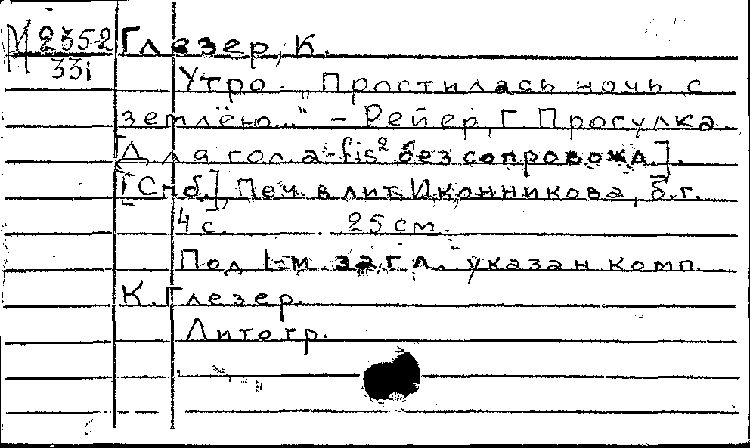 М 2352 Глезер, К.
331 Утро. „Простилась ночь с
землёю..." – Рейер, Г. Прогулка.
[Для гол. a-fis² без сопровожд.].
[Спб.], Печ. в лит. Иконникова, б.г.
4 с. 25 см.
Под 1-м загл. указан комп.
К. Глезер.
Литогр.